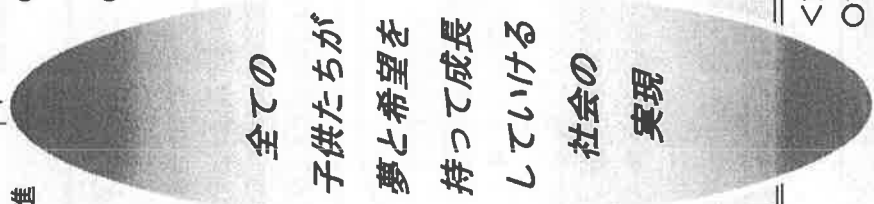 全ての
子供たちが
夢と希望を
持って成長
していける
社会の
実現
進